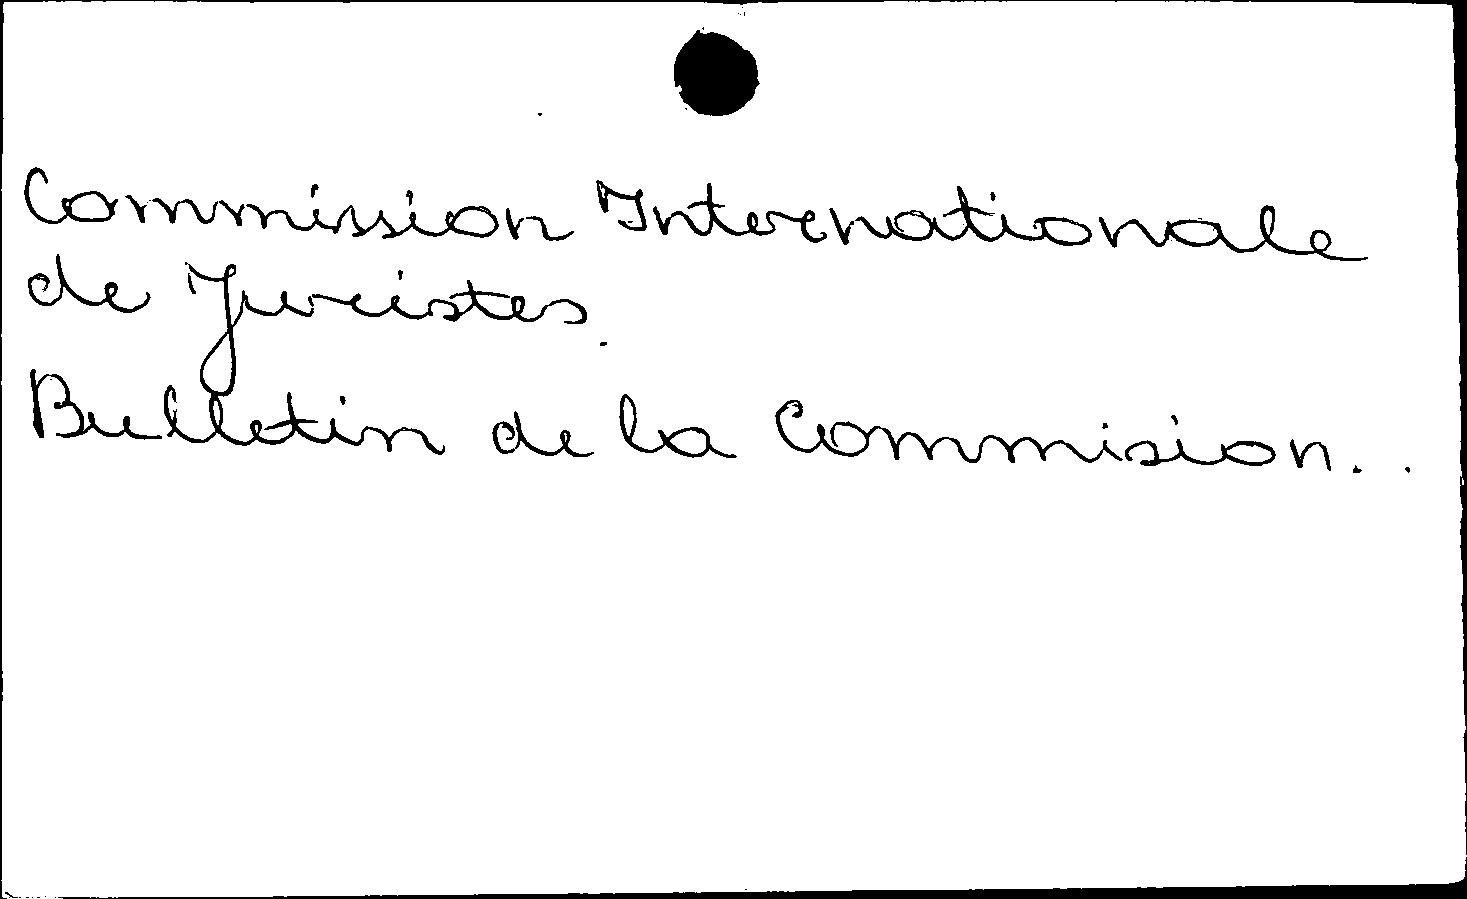 Commission Internationale
de Juristes.
Bulletin de la Commision..